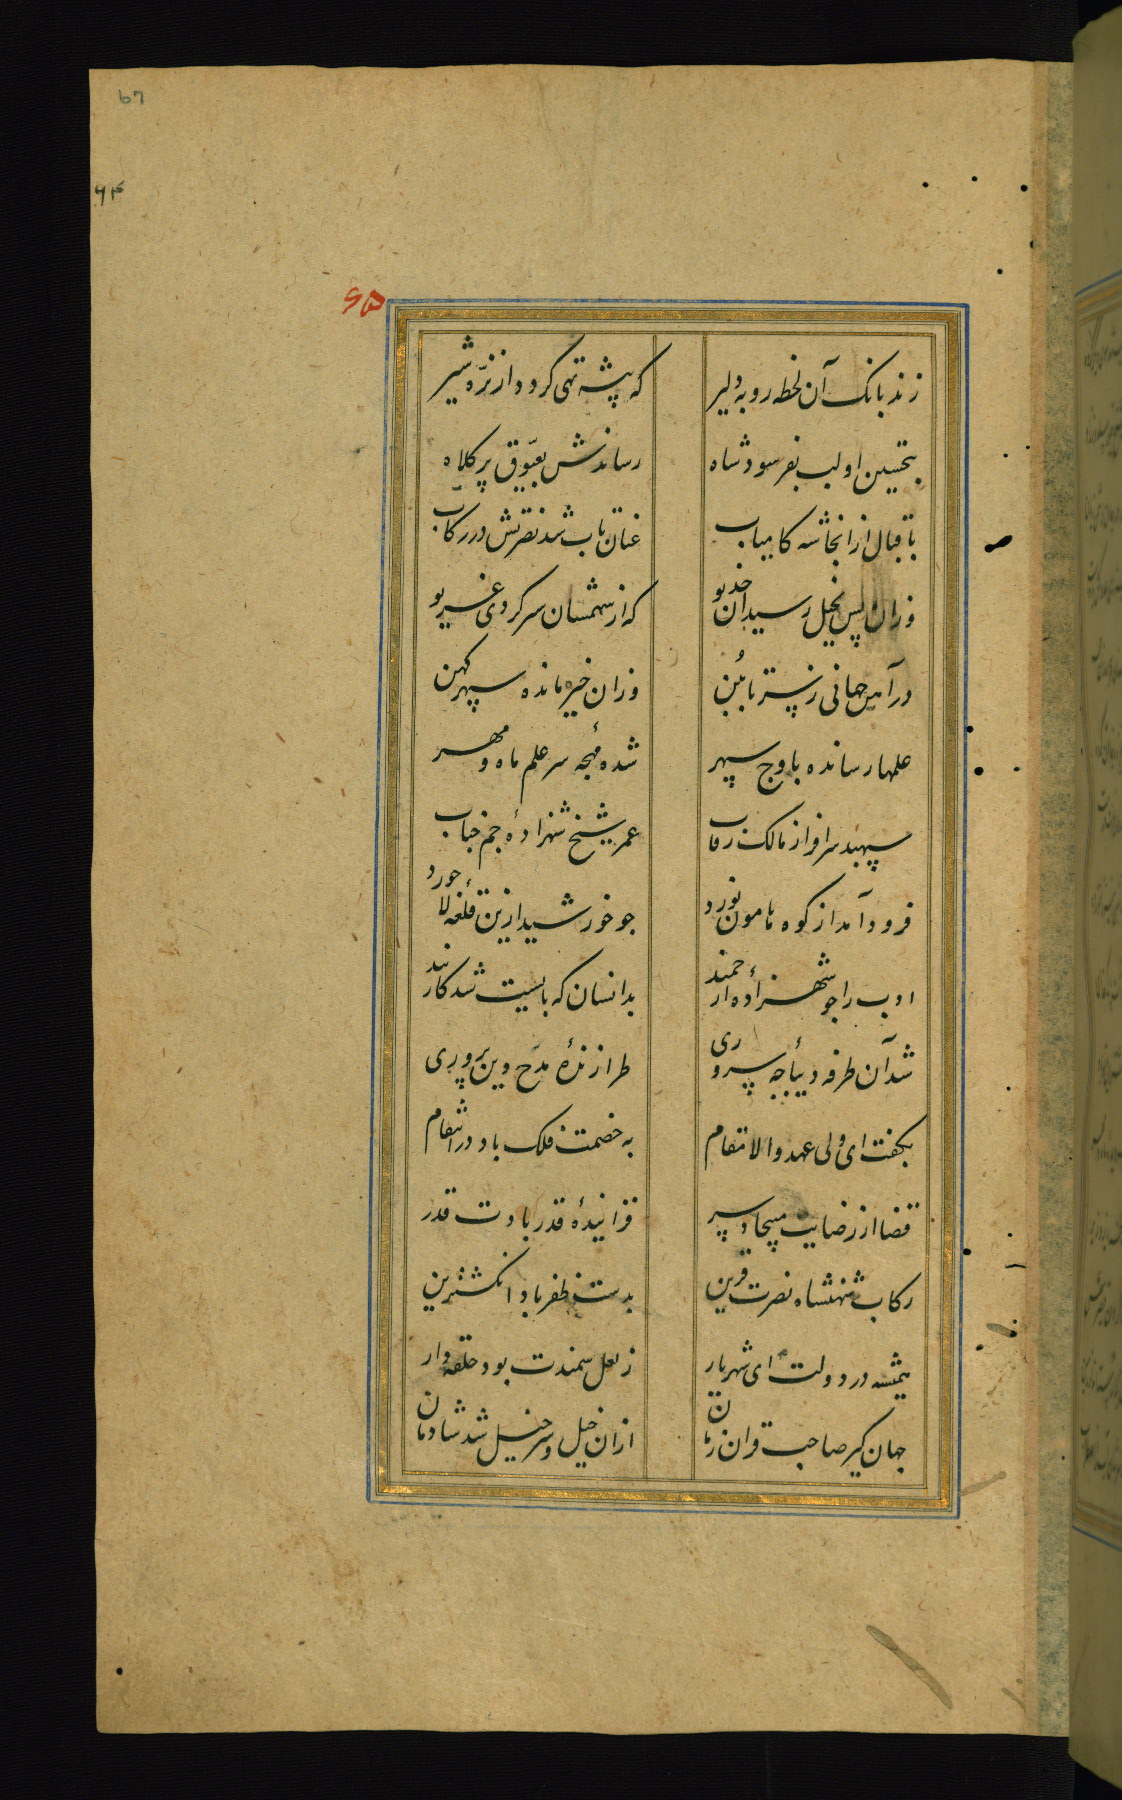 67
۶۴
۶۵
زند بانک آن لحظه روبه دلیر که بیشه تهی کردد از نرّه شیر
بتحسین او لب بفرسود شاه رساندش بعیّوق پر کلاه
باقبال از انجا شه کامیاب عنان تاب شد نصرتش در رکاب
وزان پس بخیل رسید آن خدیو که از سهمشان سر کردی غریو
در آهن جهانی ز سر تا ببن وزان خیره مانده سپهر کهن
علمها رسانده باوج سپهر شده مهجهٔ سر علم ماه و مهر
سپهبد سرافراز مالک رقاب عمر شیخ شهزادهٔ جم جناب
فرود آمد از کوه هامون نورد چو خورشید ازین قلعهٔ لاجورد
ادب را چو شهزادهٔ ارجمند بدانسان که بایست شد کاربند
شد آن طرفه دیباجهٔ سروری طرازندهٔ مدح دین پروری
بکفت ای ولی عهد والا مقام به خصمت فلک باد در انتقام
قضا از رضایت مپیچاد سر فزایندهٔ قدر بادت قدر
رکاب شهنشاه نصرت قرین بدست ظفر باد انکشترین
همیشه در دولت ای شهریار ز لعل سمندت بود حلقه دار
جهان کیر صاحب قران زمان ازان خیل و سرخیل شد شادمان